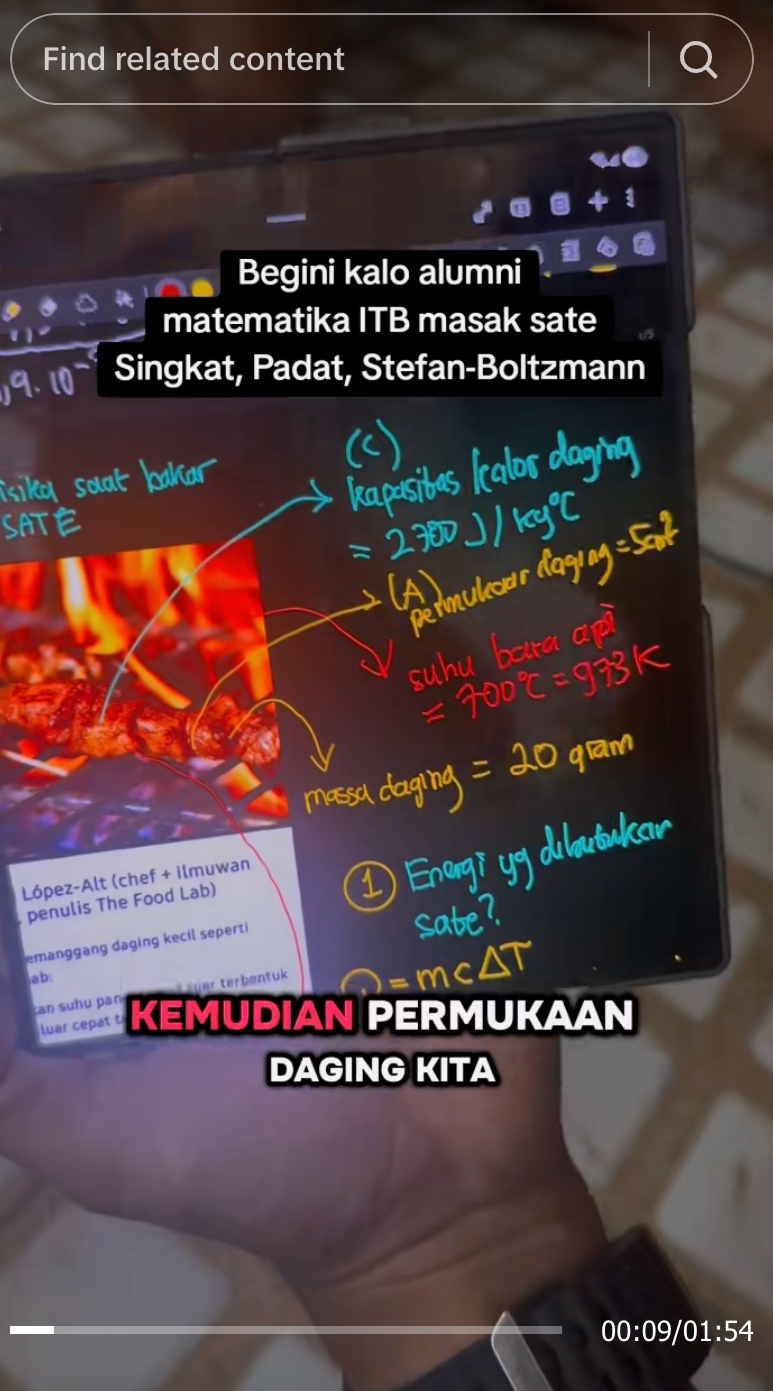 Find related content
Begini kalo alumni
matematika ITB masak sate
Singkat, Padat, Stefan-Boltzmann
saat bakar
SATE
(c)
kapasitas kalor daging
= 2700 J/kg°C
(A)
permukaan daging = 5cm²
suhu bara api
= 700°C = 973K
massa daging = 20 gram
1 Energi yg dibutuhkan
sate?
= mcΔT
López-Alt (chef + ilmuwan
penulis The Food Lab)
emanggang daging kecil seperti
ab:
an suhu pan terbentuk
luar cepat
KEMUDIAN PERMUKAAN
DAGING KITA
00:09/01:54